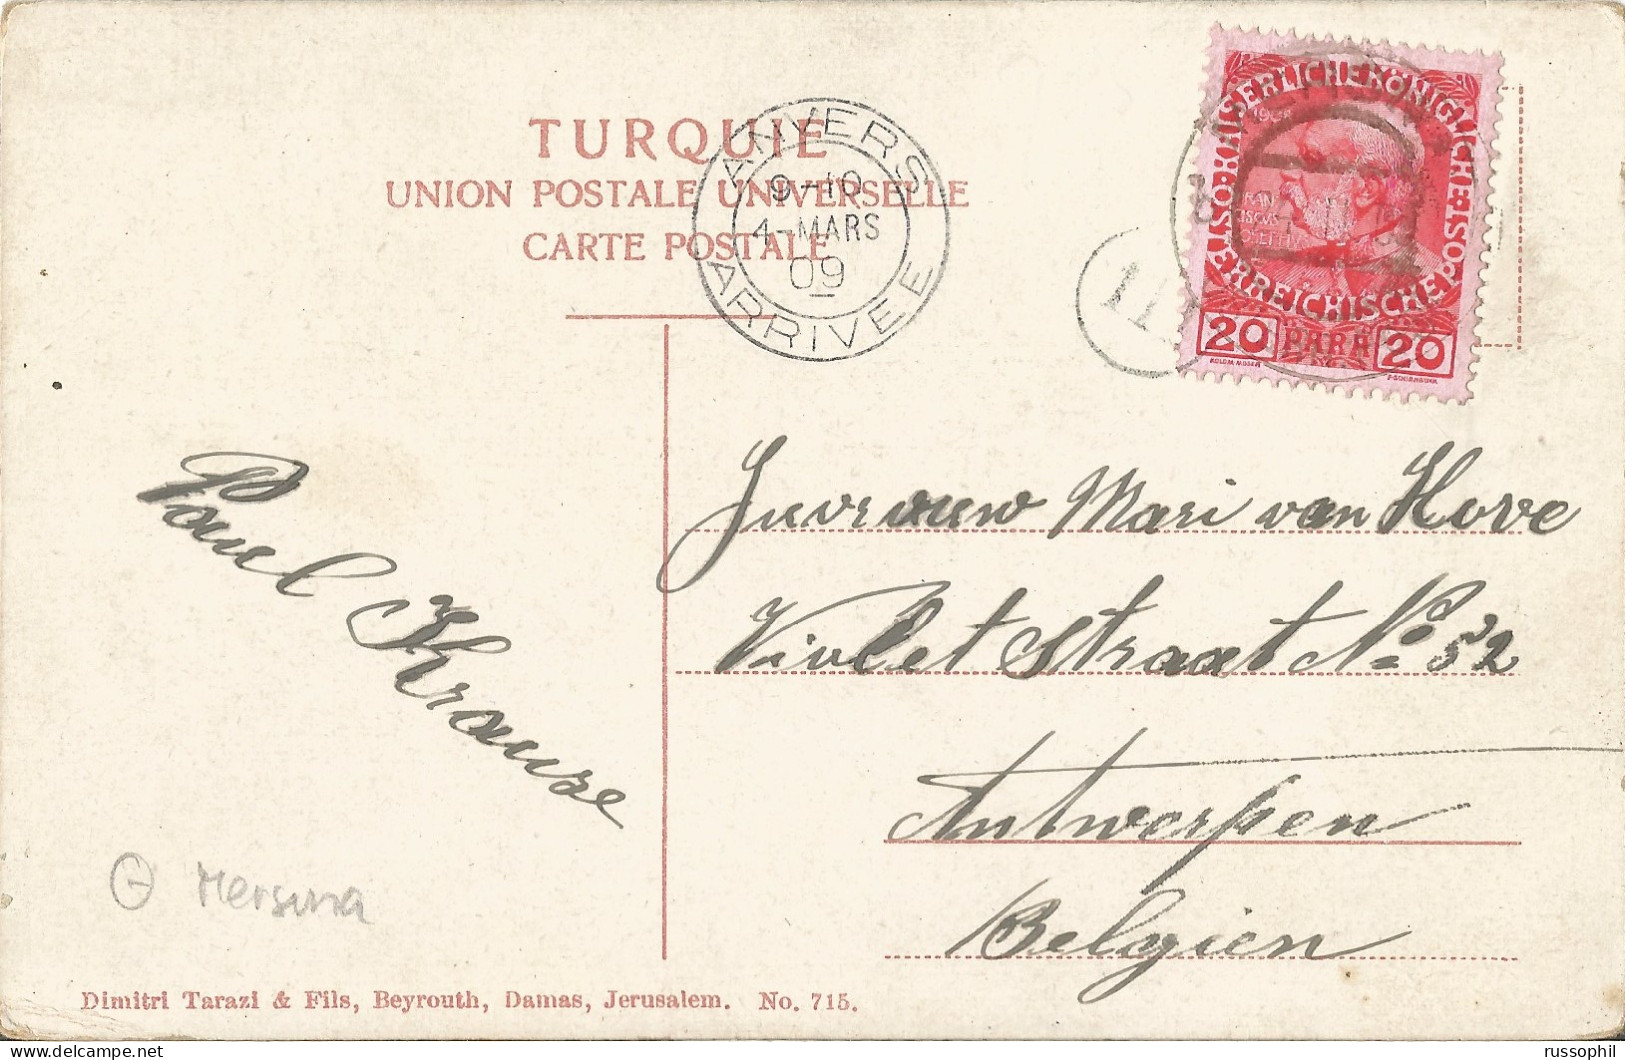 TURQUIE
UNION POSTALE UNIVERSELLE
CARTE POSTALE
ANVERS
9-10
4-MARS
09
ARRIVEE
11
KAISERLICHEKÖNIGLICHE
ÖSTERREICHISCHE POST
1908
FRAN
CISCVS
IOSEPHVS
20 PARA 20
KOLOM. MOSER
F. SCHIRNBÖCK
Juvrouw Mari van Hove
Violet Straat No 52
Antwerpen
Belgien
Paul Krause
Mersina
Dimitri Tarazi & Fils, Beyrouth, Damas, Jerusalem. No. 715.
delcampe.net
russophil